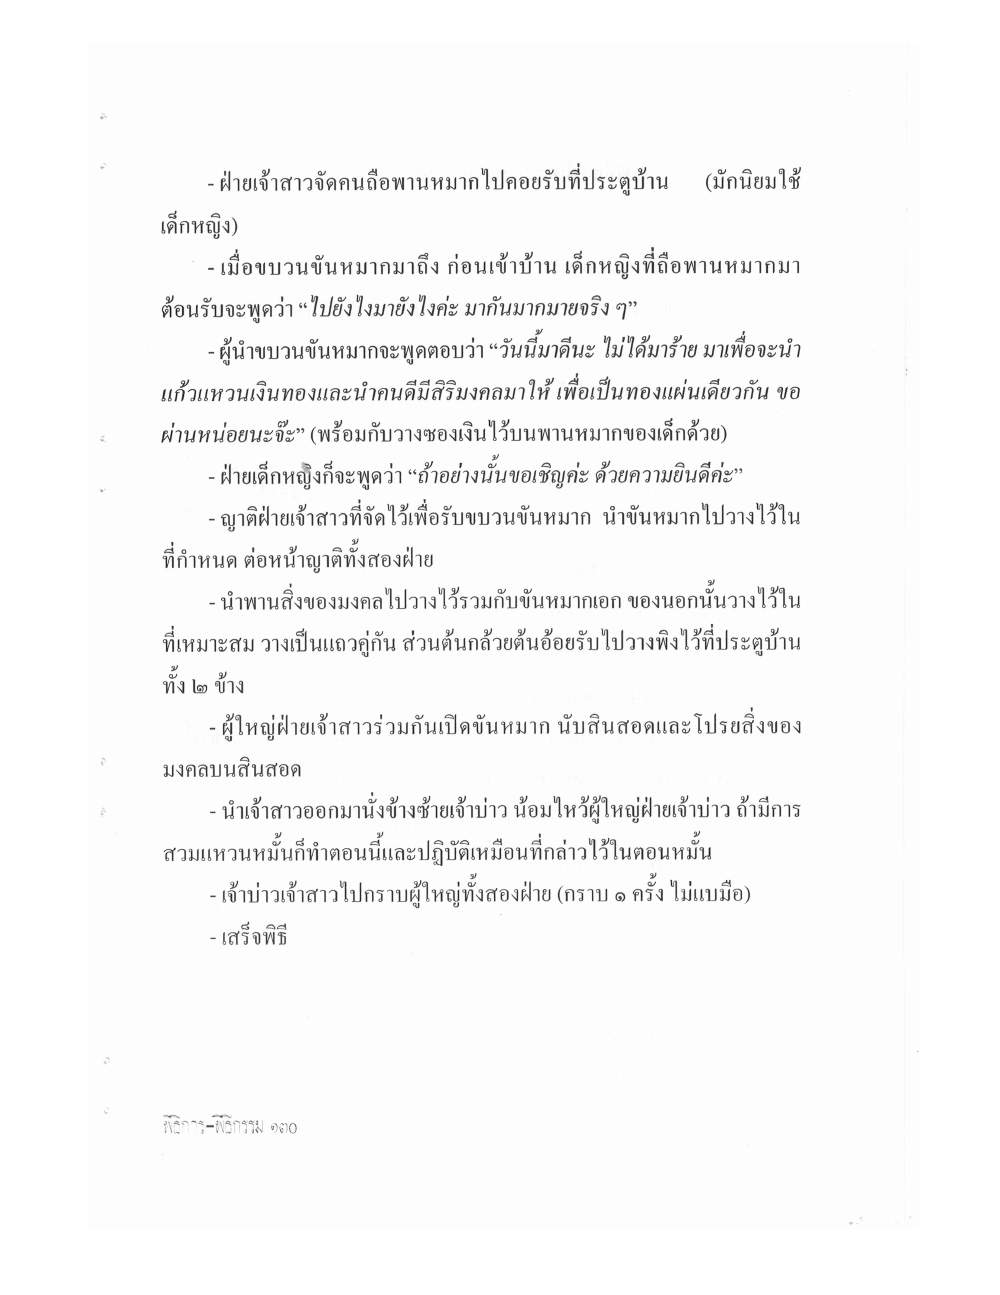 - ฝ่ายเจ้าสาวจัดคนถือพานหมากไปคอยรับที่ประตูบ้าน (มักนิยมใช้
เด็กหญิง)
- เมื่อขบวนขันหมากมาถึง ก่อนเข้าบ้าน เด็กหญิงที่ถือพานหมากมา
ต้อนรับจะพูดว่า “ไปยังไงมายังไงค่ะ มากันมากมายจริง ๆ”
- ผู้นำขบวนขันหมากจะพูดตอบว่า “วันนี้มาดีนะ ไม่ได้มาร้าย มาเพื่อจะนำ
แก้วแหวนเงินทองและนำคนดีมีสิริมงคลมาให้ เพื่อเป็นทองแผ่นเดียวกัน ขอ
ผ่านหน่อยนะจ๊ะ” (พร้อมกับวางซองเงินไว้บนพานหมากของเด็กด้วย)
- ฝ่ายเด็กหญิงก็จะพูดว่า “ถ้าอย่างนั้นขอเชิญค่ะ ด้วยความยินดีค่ะ”
- ญาติฝ่ายเจ้าสาวที่จัดไว้เพื่อรับขบวนขันหมาก นำขันหมากไปวางไว้ใน
ที่กำหนด ต่อหน้าญาติทั้งสองฝ่าย
- นำพานสิ่งของมงคลไปวางไว้รวมกับขันหมากเอก ของนอกนั้นวางไว้ใน
ที่เหมาะสม วางเป็นแถวคู่กัน ส่วนต้นกล้วยต้นอ้อยรับไปวางพิงไว้ที่ประตูบ้าน
ทั้ง ๒ ข้าง
- ผู้ใหญ่ฝ่ายเจ้าสาวร่วมกันเปิดขันหมาก นับสินสอดและโปรยสิ่งของ
มงคลบนสินสอด
- นำเจ้าสาวออกมานั่งข้างซ้ายเจ้าบ่าว น้อมไหว้ผู้ใหญ่ฝ่ายเจ้าบ่าว ถ้ามีการ
สวมแหวนหมั้นก็ทำตอนนี้และปฏิบัติเหมือนที่กล่าวไว้ในตอนหมั้น
- เจ้าบ่าวเจ้าสาวไปกราบผู้ใหญ่ทั้งสองฝ่าย (กราบ ๑ ครั้ง ไม่แบมือ)
- เสร็จพิธี
พิธีการ-พิธีกรรม ๑๓๐